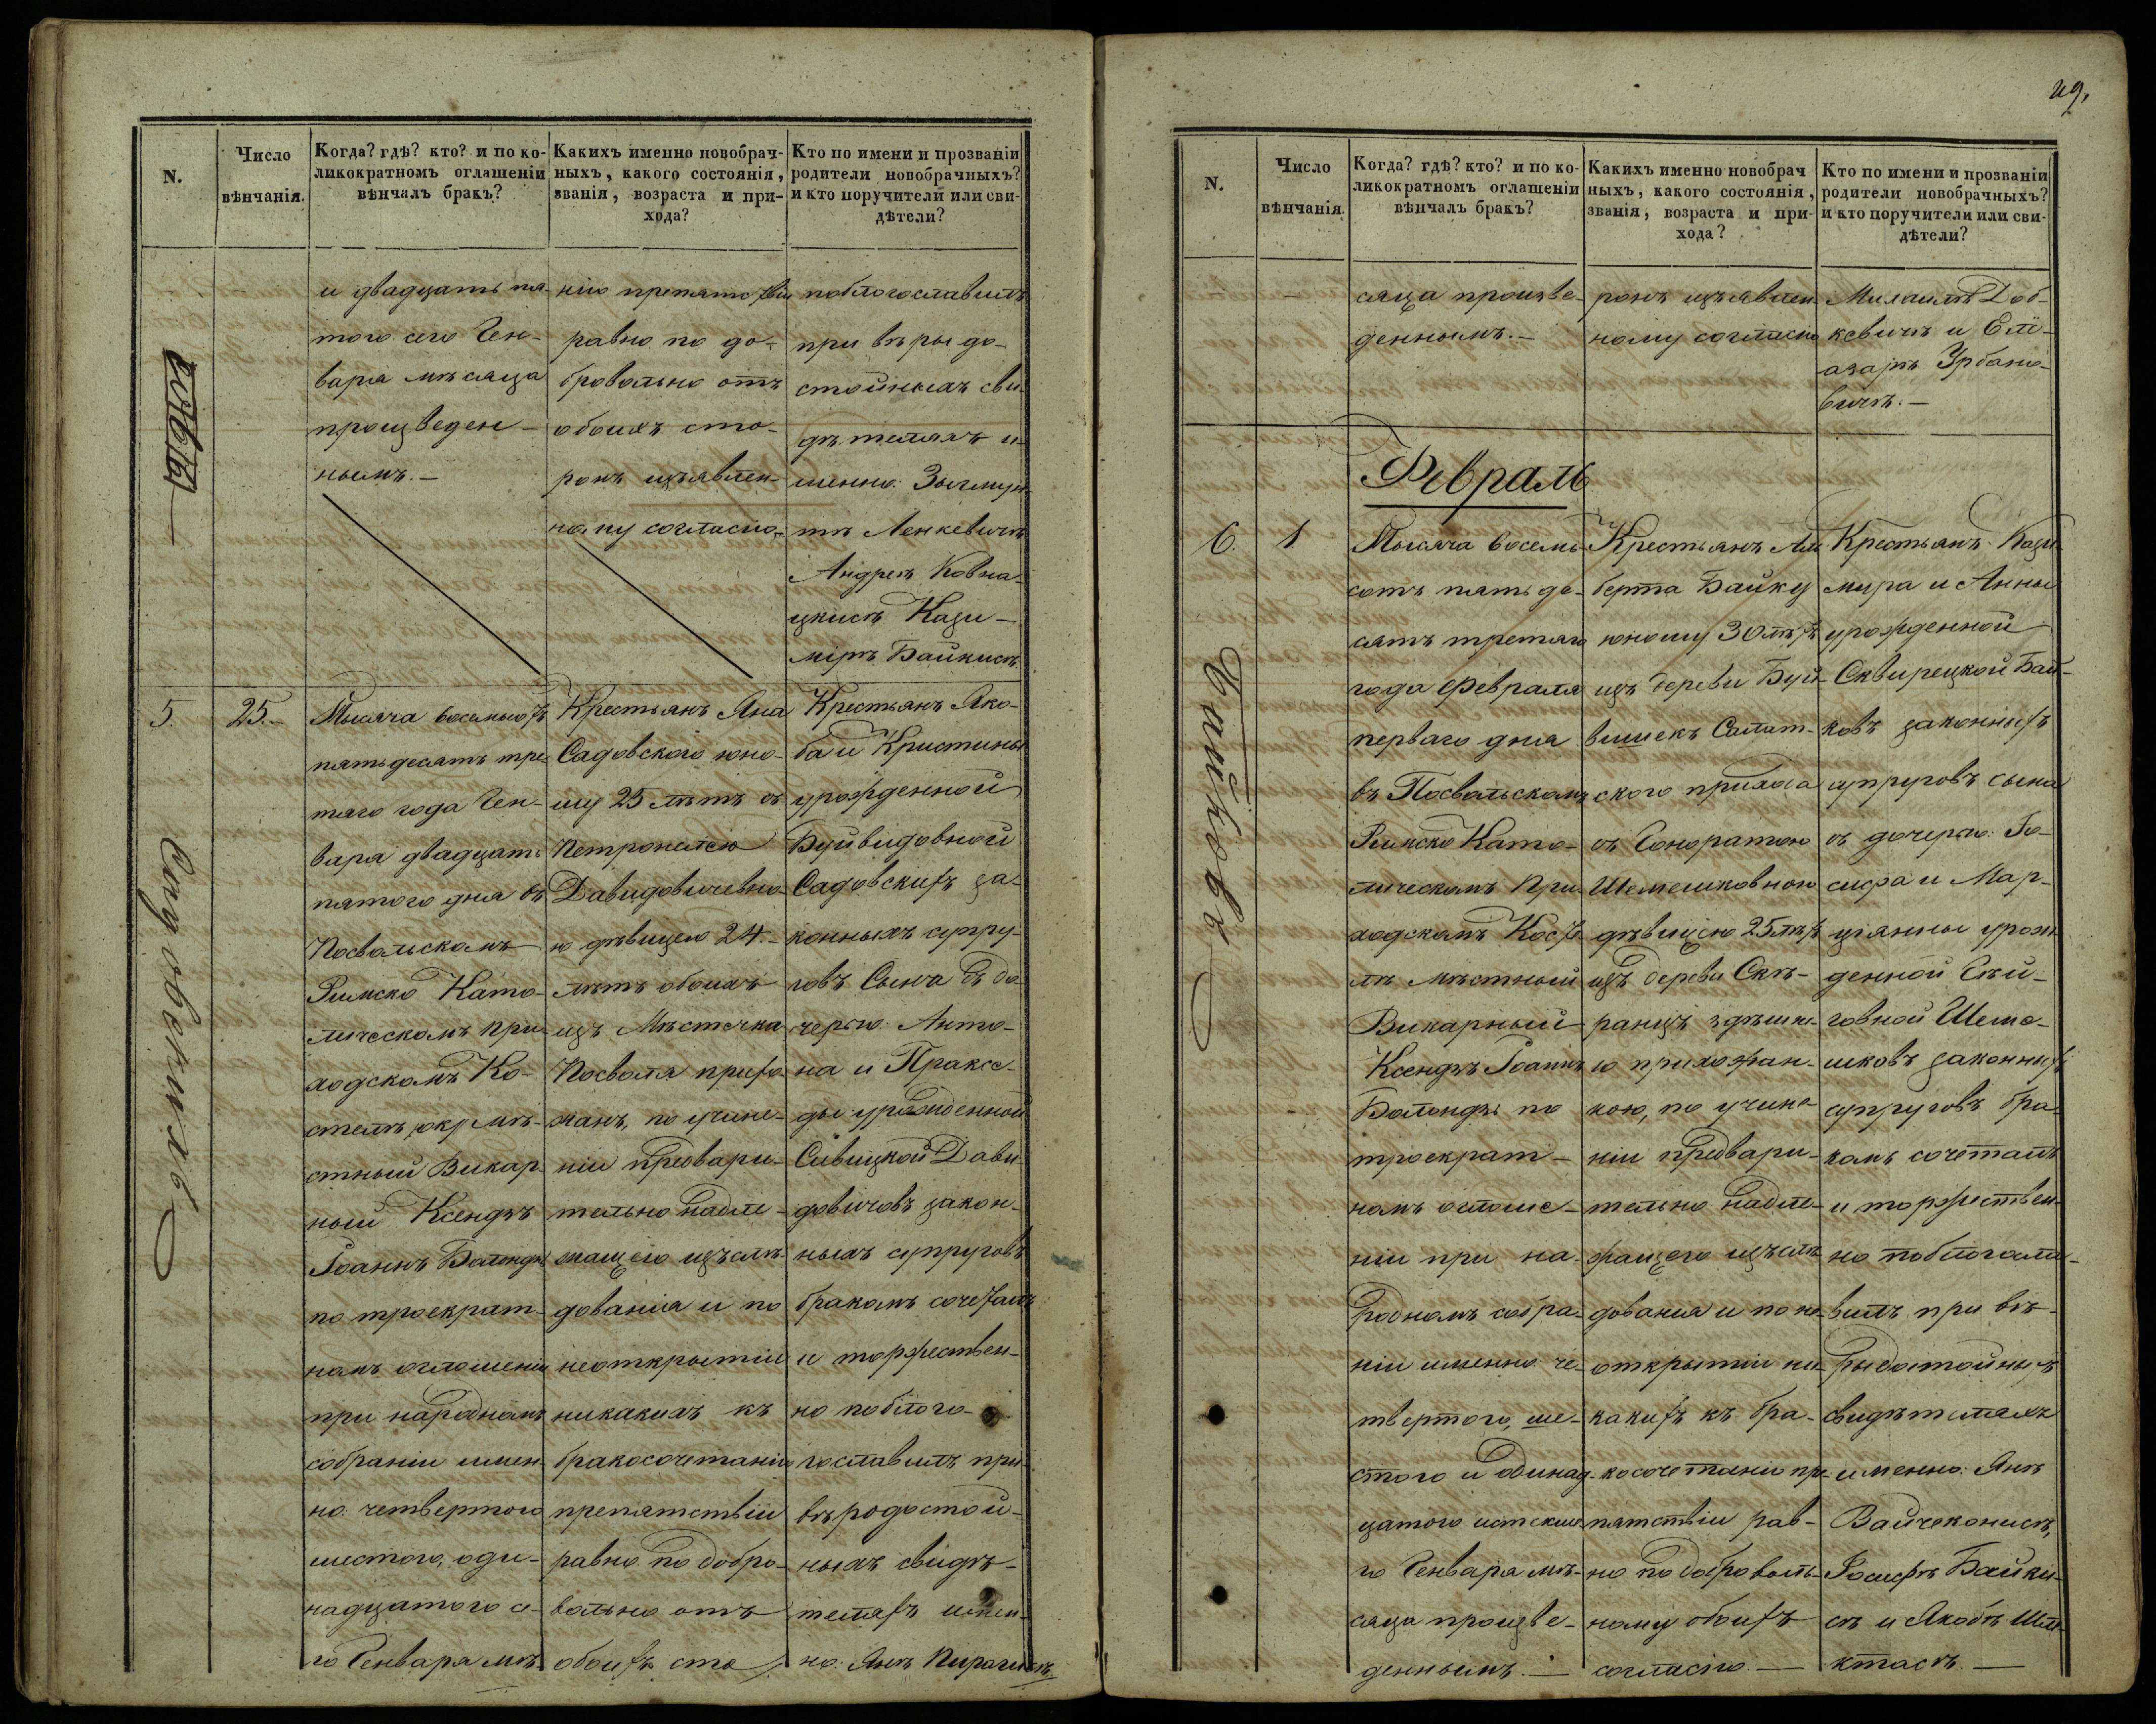 N.
Число
вѣнчанія.
Когда? гдѣ? кто? и по ко-
ликократномъ оглашеніи
вѣнчалъ бракъ?
Какихъ именно новобрач-
ныхъ, какого состоянія,
званія, возраста и при-
хода?
Кто по имени и прозваніи
родители новобрачныхъ?
и кто поручители или сви-
дѣтели?
и двадцать пя-
того сего Ген-
варя мѣсяца
произведен-
нымъ.-
нію препятствіи
равно по до-
бровольно отъ
обоихъ сто-
ронъ изъявлен-
ному согласію-
поблогославилъ
при вѣры до-
стойныхъ сви-
дѣтеляхъ и-
менно: Зыгмун-
тѣ Ленкевичъ
Андрей Ковна-
цкисъ Кази-
міръ Байкисъ.
5.
25.-
Тысяча восемьсотъ
пятьдесятъ тре
тяго года Ген-
варя двадцать
пятого дня въ
Посвольскомъ
Римско Като-
лическомъ при-
ходскомъ Ко-
стелѣ, мѣ-
стный Викар
ный Ксендзъ
Іоаннъ Болондзь
по троекрат-
номъ оглошеніи
при народномъ
собраніи имен-
но: четвертого
шестого, оди-
надцатого се-
го Генваря мѣ-
Крестьянъ Яна
Садовского юно-
шу 25 лѣтъ съ
Петронелею
Давидовичевно-
ю дѣвицею 24.-
лѣтъ обоихъ
изъ Мѣстечка
Посволя прихо
жанъ, по учине-
ніи предвари-
тельно надле-
жащего изъслѣ
дованія и по
неоткрытіи
никакихъ къ
бракосочетанію
препятствіи
равно по добро-
вольно отъ
обоихъ сто
Крестьянъ Яко-
ба и Кристины
урожденной
Буйвидовной
Садовскихъ за-
конныхъ супру-
говъ Сына съ до
черью: Анто-
на и Праксе-
ды урожденной
Сивицкой Дави
довичовъ закон-
ныхъ супруговъ
бракомъ сочеталъ
и торжествен-
но поблого-
гославилъ при
вѣродостой-
ныхъ свидѣ-
теляхъ имен-
но: Янъ Пирагисъ,
29,
N.
Число
вѣнчанія.
Когда? гдѣ? кто? и по ко-
ликократномъ оглашеніи
вѣнчалъ бракъ?
Какихъ именно новобрач
ныхъ, какого состоянія,
званія, возраста и при-
хода?
Кто по имени и прозваніи
родители новобрачныхъ?
и кто поручители или сви-
дѣтели?
сяца произве-
деннымъ.-
ронъ изъявлен
ному согласію
Михаилъ Доб-
кевичъ и Елі-
азаръ Урбано-
вичъ.-
Февраль
6.
1.
Тысяча восемь-
сотъ пять де-
сятъ третяго
года Февраля
перваго дня
въ Посвольскомъ
Римско Като-
лическомъ При-
ходскомъ Косте
лѣ мѣстный
Викарный
Ксендзъ Іоаннъ
Болондзь по
троекрат-
номъ оглоше-
ніи при на-
родномъ собра-
ніи именно: че-
твертого, ше-
стого и одинад-
цатого истекше
го Генваря мѣ-
сяца произве-
деннымъ.-
Крестьянъ Аль
берта Байку
юношу 30 лѣтъ
изъ дереви Буй-
вишекъ Салат-
ского прихода
съ Гоноратою
Шемешковною
дѣвицею 25 лѣтъ
изъ дереви Скѣ-
ранцъ здѣшне-
ю прихожан-
кою, по учине
ніи предвари-
тельно надле-
жащего изъслѣ
дованія и по не-
открытіи ни-
какихъ къ бра-
косочетанію пре
пятствіи рав-
но по доброволь-
ному обоихъ
согласію.-
Крестьянъ Кази
мира и Анны
урожденной
Сквирецкой Бай-
ковъ законныхъ
супруговъ сына
съ дочерью: Іо-
сифа и Мар-
ціянны урож-
денной
говной Шеме-
шковъ законныхъ
супруговъ бра-
комъ сочеталъ
и торжествен-
но поблогосла-
вилъ при вѣ-
рыдостойныхъ
свидѣтеляхъ
именно: Янъ
Вайчеконисъ,
Іосифъ Байки-
съ и Якобъ Шле-
ктасъ.-
Байковъ